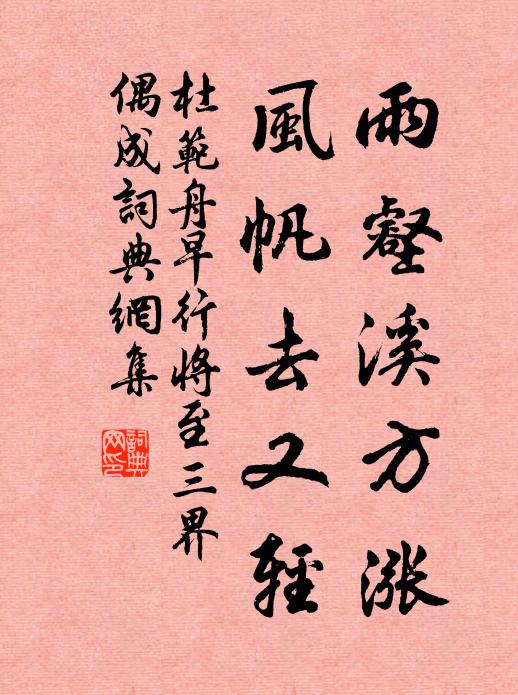 雨壑溪方漲
風帆去又輕
杜範舟早行將至三界
偶成詞典網集
詞典網印